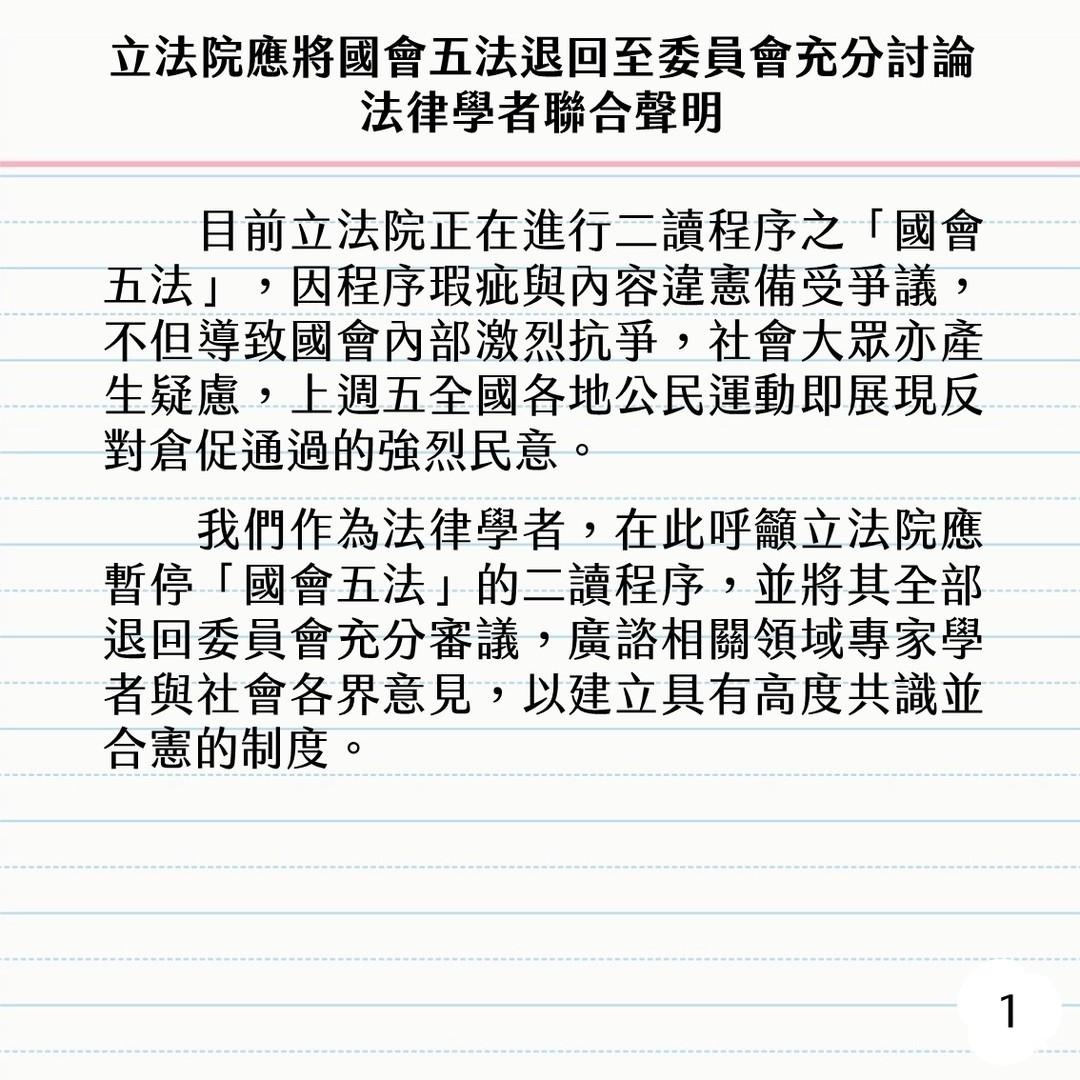 立法院應將國會五法退回至委員會充分討論
法律學者聯合聲明
目前立法院正在進行二讀程序之「國會
五法」,因程序瑕疵與內容違憲備受爭議,
不但導致國會內部激烈抗爭,社會大眾亦產
生疑慮,上週五全國各地公民運動即展現反
對倉促通過的強烈民意。
我們作為法律學者,在此呼籲立法院應
暫停「國會五法」的二讀程序,並將其全部
退回委員會充分審議,廣諮相關領域專家學
者與社會各界意見,以建立具有高度共識並
合憲的制度。
1